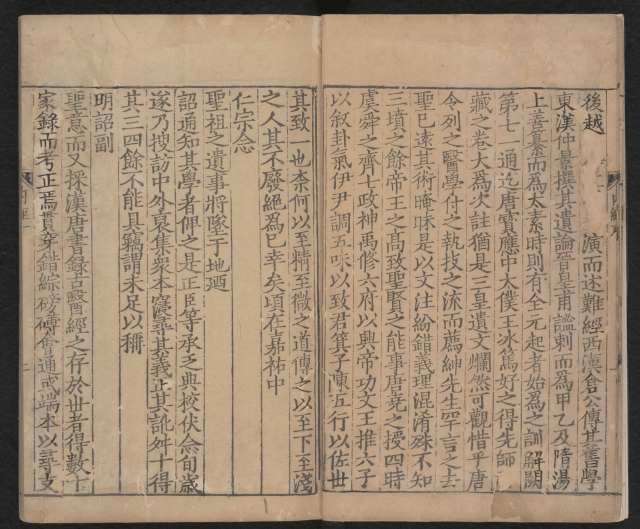 後越演而述難經西漢倉公傳其舊學
東漢仲景撰其遺論晉皇甫謐刺而為甲乙及隋湯
上善纂而為太素時則有全元起者始為之訓解闕
第七一通迄唐寶應中太僕王冰篤好之得先師
藏之卷大為次註猶是三皇遺文爛然可觀惜乎唐
令列之醫學付之執技之流而薦紳先生罕言之去
聖已遠其術晻昧是以文注紛錯義理混淆殊不知
三墳之餘帝王之高致聖賢之能事唐堯之授四時
虞舜之齊七政神禹修六府以興帝功文王推六子
以叙卦氣伊尹調五味以致君箕子陳五行以佐世
其致一也柰何以至精至微之道傳之以至下至淺
之人其不廢絕為已幸矣頃在嘉祐中
仁宗念
聖祖之遺事將墜于地廼
詔通知其學者俾之是正臣等承乏典校伏念旬歲
遂乃搜訪中外裒集眾本寖尋其義正其訛舛十得
其三四餘不能具竊謂未足以稱
明詔副
聖意而又採漢唐書錄古醫經之存於世者得數十
家錄而考正焉貫穿錯綜磅礴會通或端本以尋支